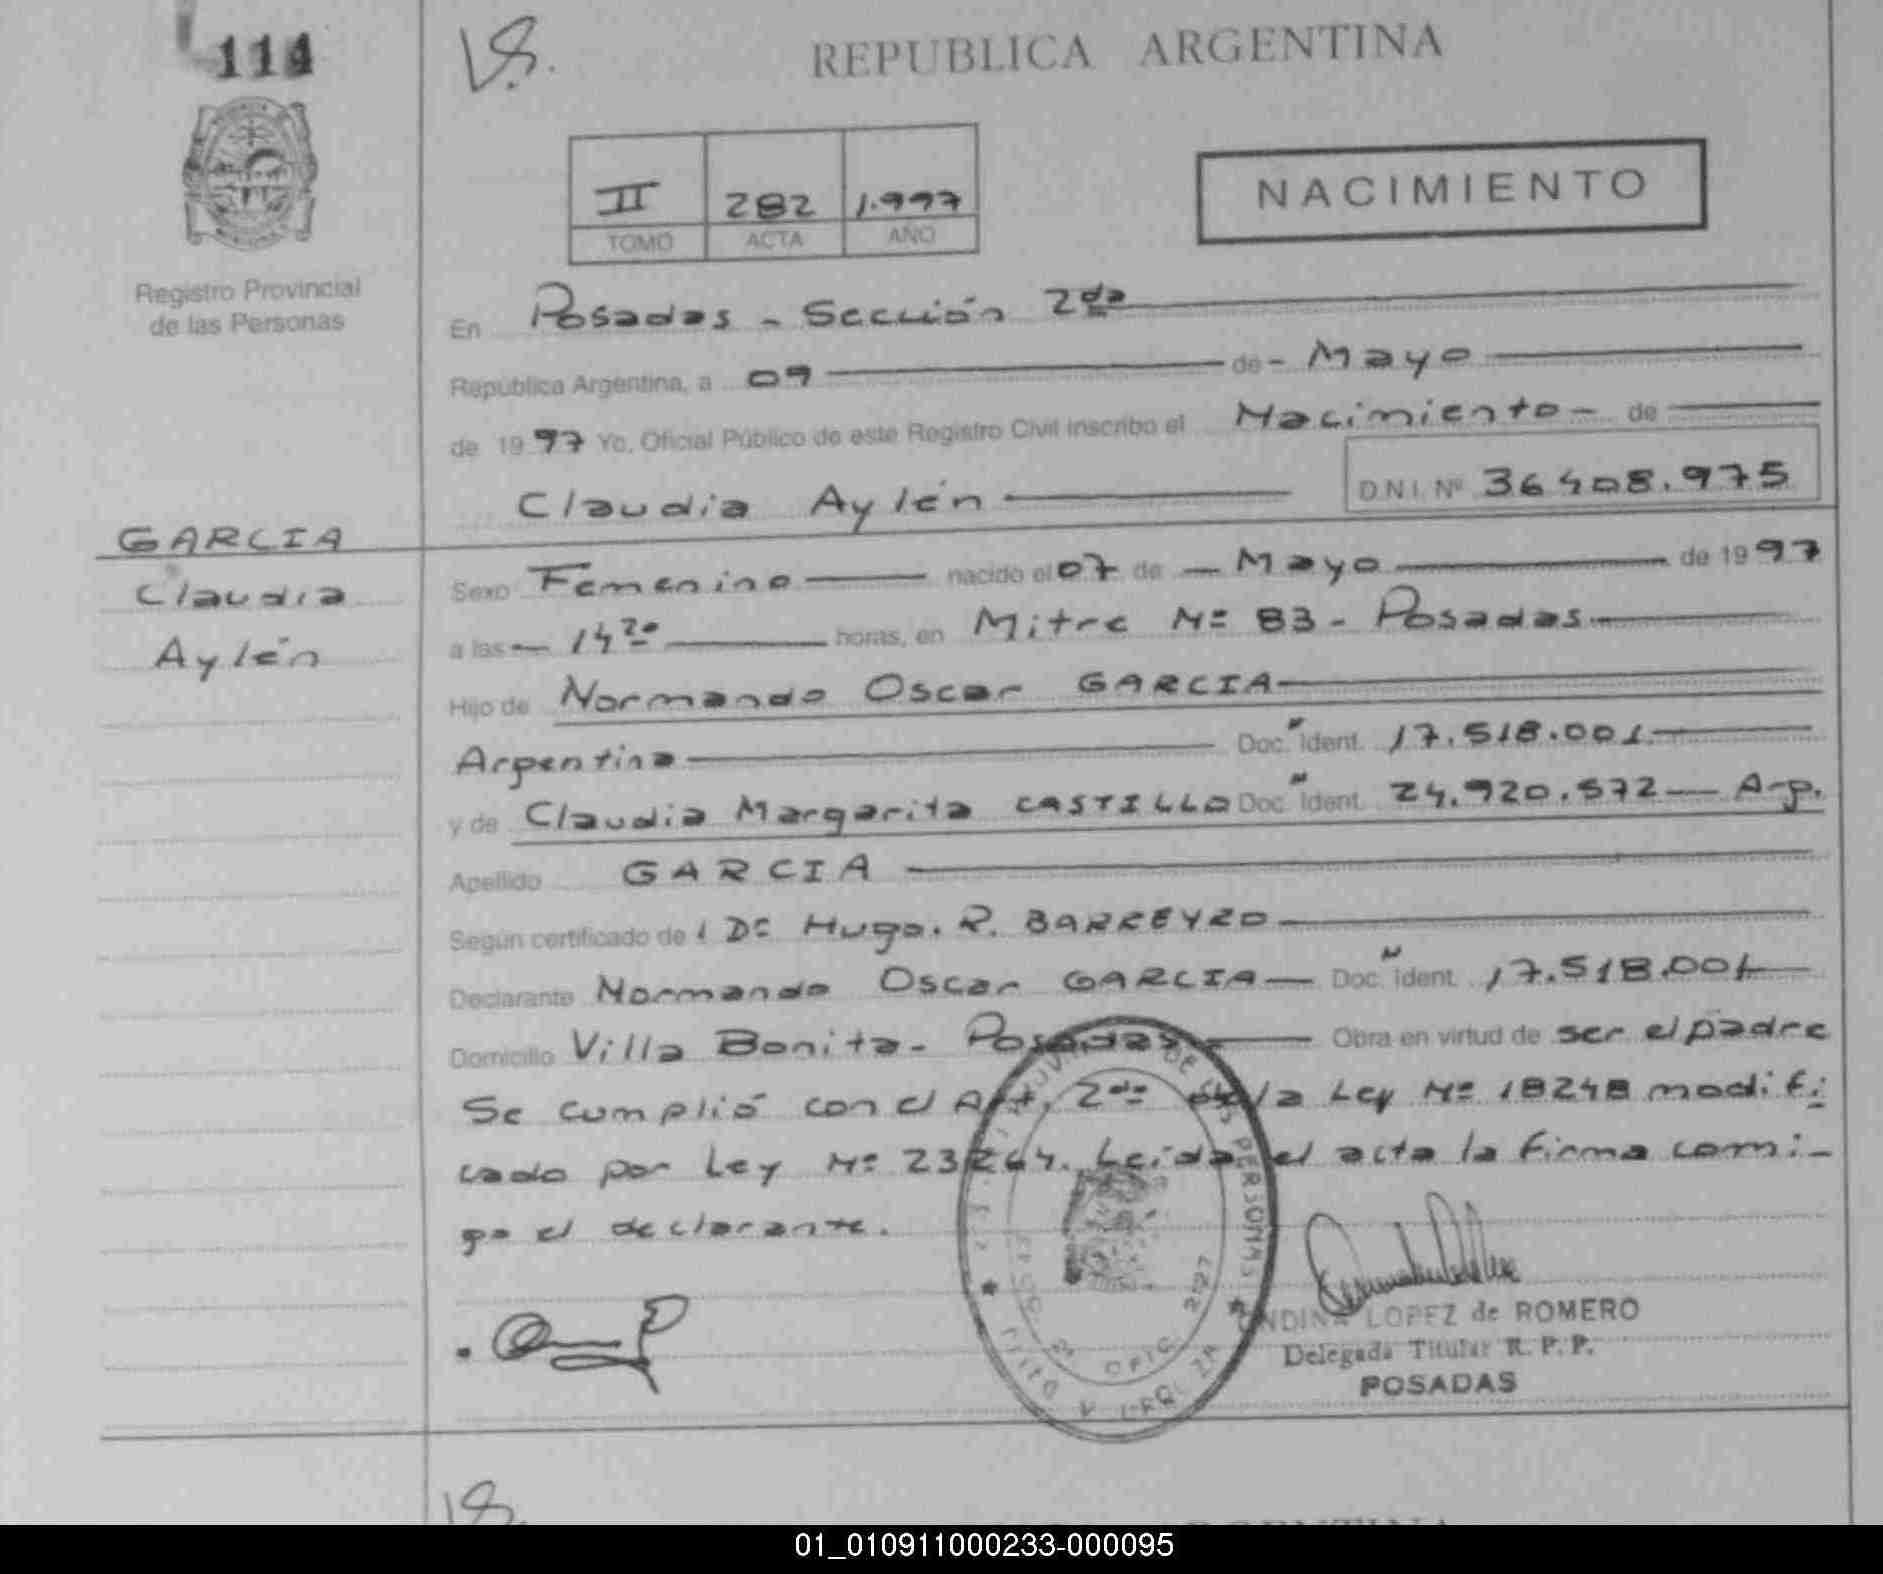 114
REPUBLICA ARGENTINA
II 282 1.997
TOMO ACTA AÑO
NACIMIENTO
Registro Provincial
de las Personas
En Posadas - Sección 2da
República Argentina, a 09 de - Mayo
de 1997 Yo, Oficial Público de este Registro Civil inscribo el Nacimiento - de
Claudia Aylén D.N.I. Nº 36408.975
GARCIA
Claudia
Aylén
Sexo Femenino nacido el 07 de - Mayo de 1997
a las - 14 20 horas, en Mitre Nº 83 - Posadas
Hijo de Normando Oscar GARCIA
Argentina Doc. Ident. 17.518.001
y de Claudia Margarita CASTILLO Doc. Ident. 24.920.572 - Arg.
Apellido GARCIA
Según certificado de l Dr Hugo. R. BARREYRO
Declarante Normando Oscar GARCIA - Doc. Ident. 17.518.001
Domicilio Villa Bonita - Posadas Obra en virtud de ser el padre
Se cumplió con el Art. 2do de la Ley Nº 18248 modifi
cado por Ley Nº 23264. Leida el acta la firma comi-
go el declarante.
DE LAS PERSONAS
OFIC
LOPEZ de ROMERO
Delegada Titular R. P. P.
POSADAS
01_010911000233-000095